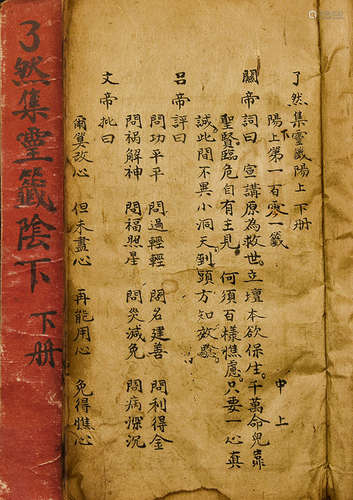 了然集靈籤陰下 下册
了然集靈籤陽上 下册
陽上第一百零一籤
中上
關帝詞曰 宣講原為救世立壇本欲保生千萬命兒靠
聖賢臨危自有主見 何須百樣憔慮只要一心真
誠此間不異小洞天到頭方知效驗
呂帝評曰
問功平平 問過輕輕 問名建善 問利得金
問禍解神 問福照星 問災減免 問病深沉
文帝批曰
爾算改心 但未盡心 再能用心 免得憔心